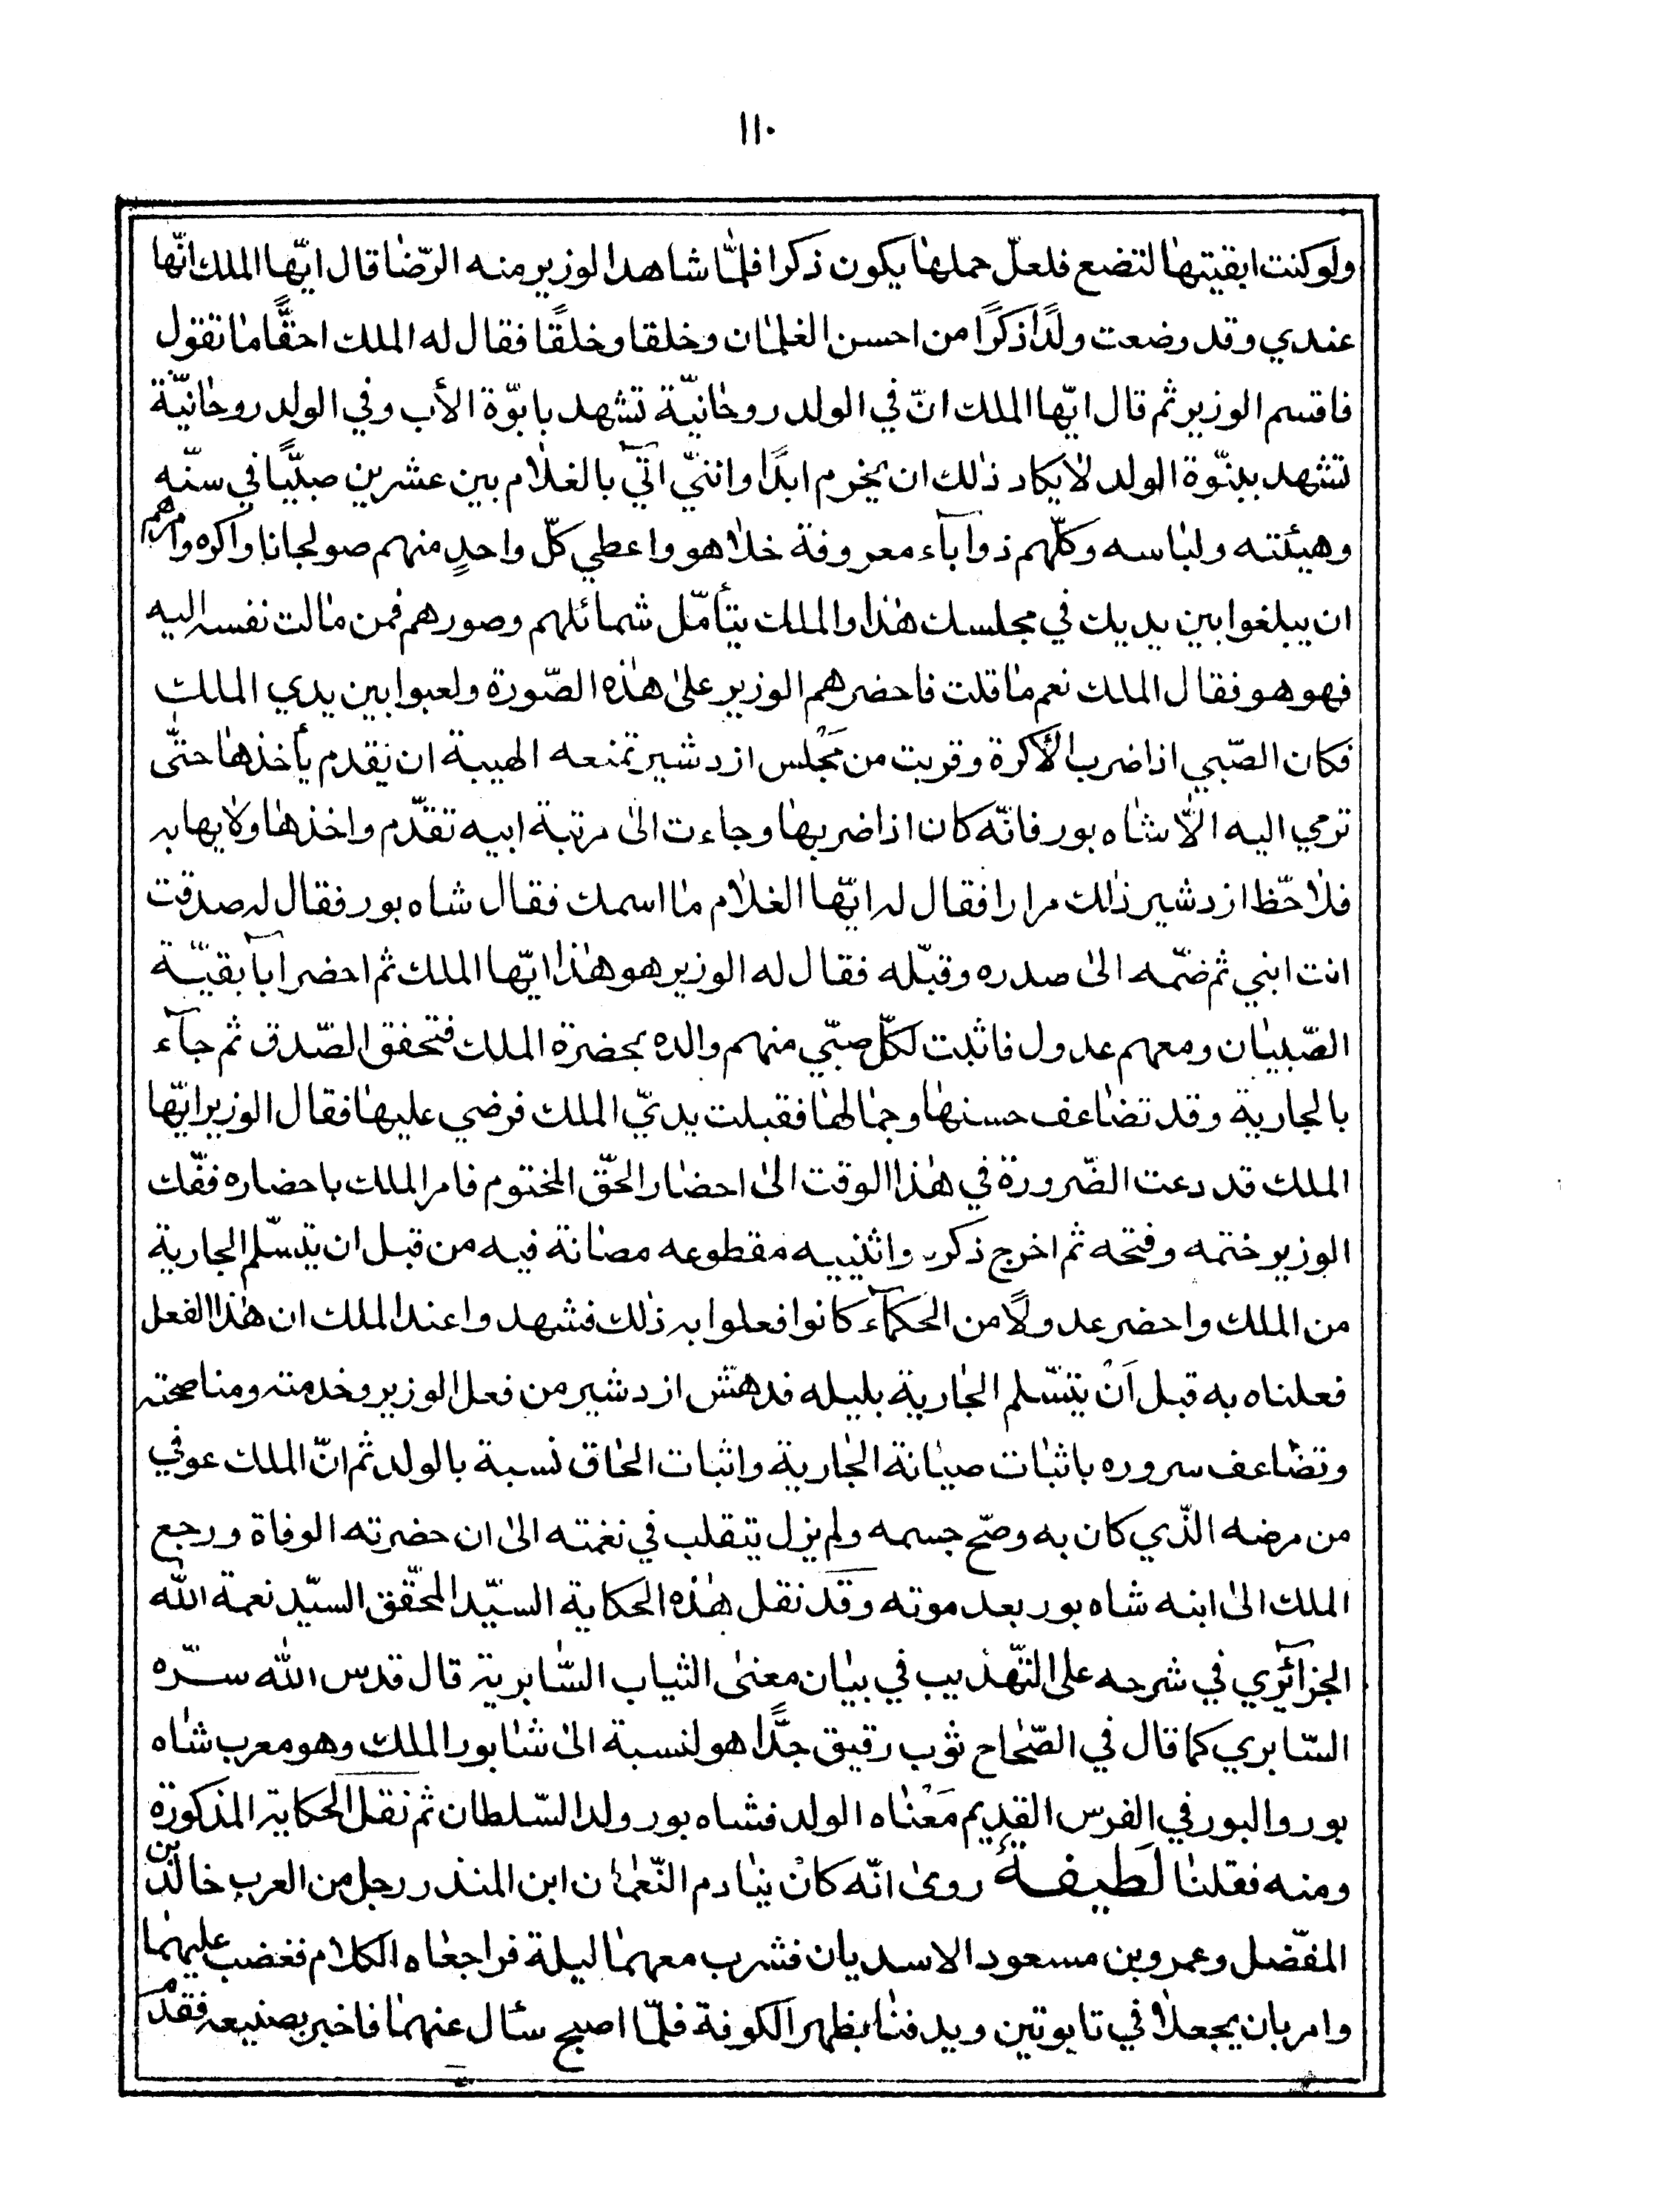 ١١٠
ولو كنت ابقيتها لتضع فلعلّ حملها يكون ذكرا فلمّا شاهد الوزير منه الرّضا قال ايّها الملك انّها
عندي وقد وضعت ولدًا ذكرًا من احسن الغلمان وخلقا وخلقًا فقال له الملك احقًّا ما تقول
فاقسم الوزير ثم قال ايّها الملك انّ في الولد روحانيّة تشهد بابوّة الأب وفي الولد روحانيّة
تشهد ببنوّة الولد لا يكاد ذلك ان يخرم ابدًا وانني آتي بالغلام بين عشرين صبيًّا في سنّه
وهيئته ولباسه وكلّهم ذوا آباء معروفة خلا هو واعطي كلّ واحدٍ منهم صولجانا واكره وآمرهم
ان يبلغوا بين يديك في مجلسك هذا والملك يتأمّل شمائلهم وصورهم فمن مالت نفسه اليه
فهو هو فقال الملك نعم ما قلت فاحضرهم الوزير على هذه الصّورة ولعبوا بين يدي الملك
فكان الصّبي اذا ضرب الأكرة وقربت من مَجْلس ازدشير تمنعه الهيبة ان يقدم يأخذها حتّى
ترمي اليه الّا شاه بور فانّه كان اذا ضربها وجاءت الى مرتبة ابيه تقدّم واخذها ولا يهابه
فلاحّظ ازدشير ذلك مرارا فقال له ايّها الغلام ما اسمك فقال شاه بور فقال له صدقت
انت ابني ثم ضمّه الى صدره وقبّله فقال له الوزير هو هذا ايّها الملك ثم احضر آبا بقيّة
الصّبيان ومعهم عدول فاثبت لكلّ صبّي منهم والده بحضرة الملك فتحقق الصّدق ثم جآء
بالجارية وقد تضاعف حسنها وجمالها فقبلت يديّ الملك فرضي عليها فقال الوزير ايّها
الملك قد دعت الضّرورة في هذا الوقت الى احضار الحقّ المختوم فامر الملك باحضاره ففّك
الوزير ختمه وفتحه ثم اخرج ذكره وانثييه مقطوعه مصانة فيه من قبل ان يتسّلم الجارية
من الملك واحضر عدولًا من الحكمآء كانوا فعلوا به ذلك فشهدوا عند الملك ان هذا الفعل
فعلناه به قبل اَنْ يتسّلم الجارية بليله فدهش ازدشير من فعل الوزير وخدمته ومناصحته
وتضاعف سروره باثبات صيانة الجارية واثبات الحاق نسبة بالولد ثم انّ الملك عوفي
من مرضه الذّي كان به وصّح جسمه ولم يزل يتقلب في نغمته الى ان حضرته الوفاة ورجع
الملك الى ابنه شاه بور بعد موته وقد نقل هذه الحكاية السيّد المحقّق السيّد نعمة الله
الجزآئري في شرحه على التّهذيب في بيان معنى الثياب السّابرية قال قدس الله سرّه
السّابري كما قال في الصّحاح ثوب رقيق جدًّا هو لنسبة الى شابور الملك وهو معرب شاه
بور والبور في الفرس القديم مَعْناه الولد فشاه بور ولد السّلطان ثم نقل الحكاية المذكورة
ومنه نقلنا لَطيفةٌ روى انّه كانْ ينادم النّعمان ابن المنذر رجل من العرب خالد بن
المفضّل وعمرو بن مسعود الاسديان فشرب معهما ليلة فراجعاه الكلام فغضب عليهما
وامر بان يجعلا في تابوتين ويدفنا بظهر الكوفة فلمّا اصبح سئال عنهما فاخبر بصنيعه فقدم